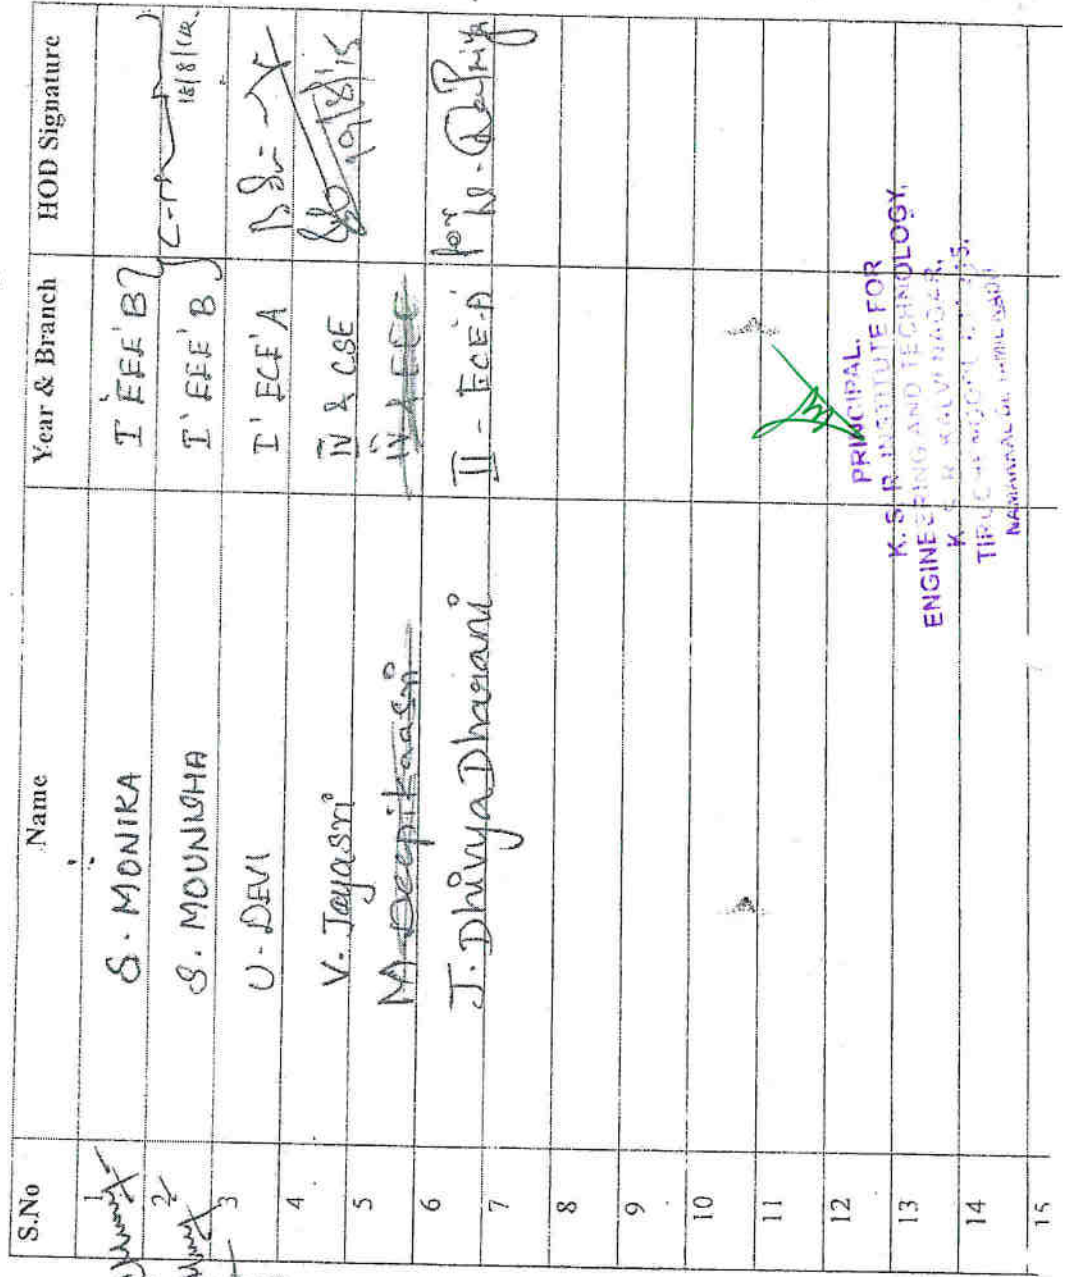 S.No Name Year & Branch HOD Signature
1 S. MONIKA I EEE 'B'
2 S. MOUNISHA I' EEE 'B' 18/8/15
3 U. DEVI I' ECE 'A'
4 V. Jayasri IV & CSE 19/8/15
5 M. Deepikaasri IV & EEE
6 J. DhivyaDharani II - ECE 'A' for
7
8
9
10
11
12
13
14
15
PRINCIPAL.
K. S. R INSTITUTE FOR
ENGINEERING AND TECHNOLOGY,
K S R KALVI NAGAR,